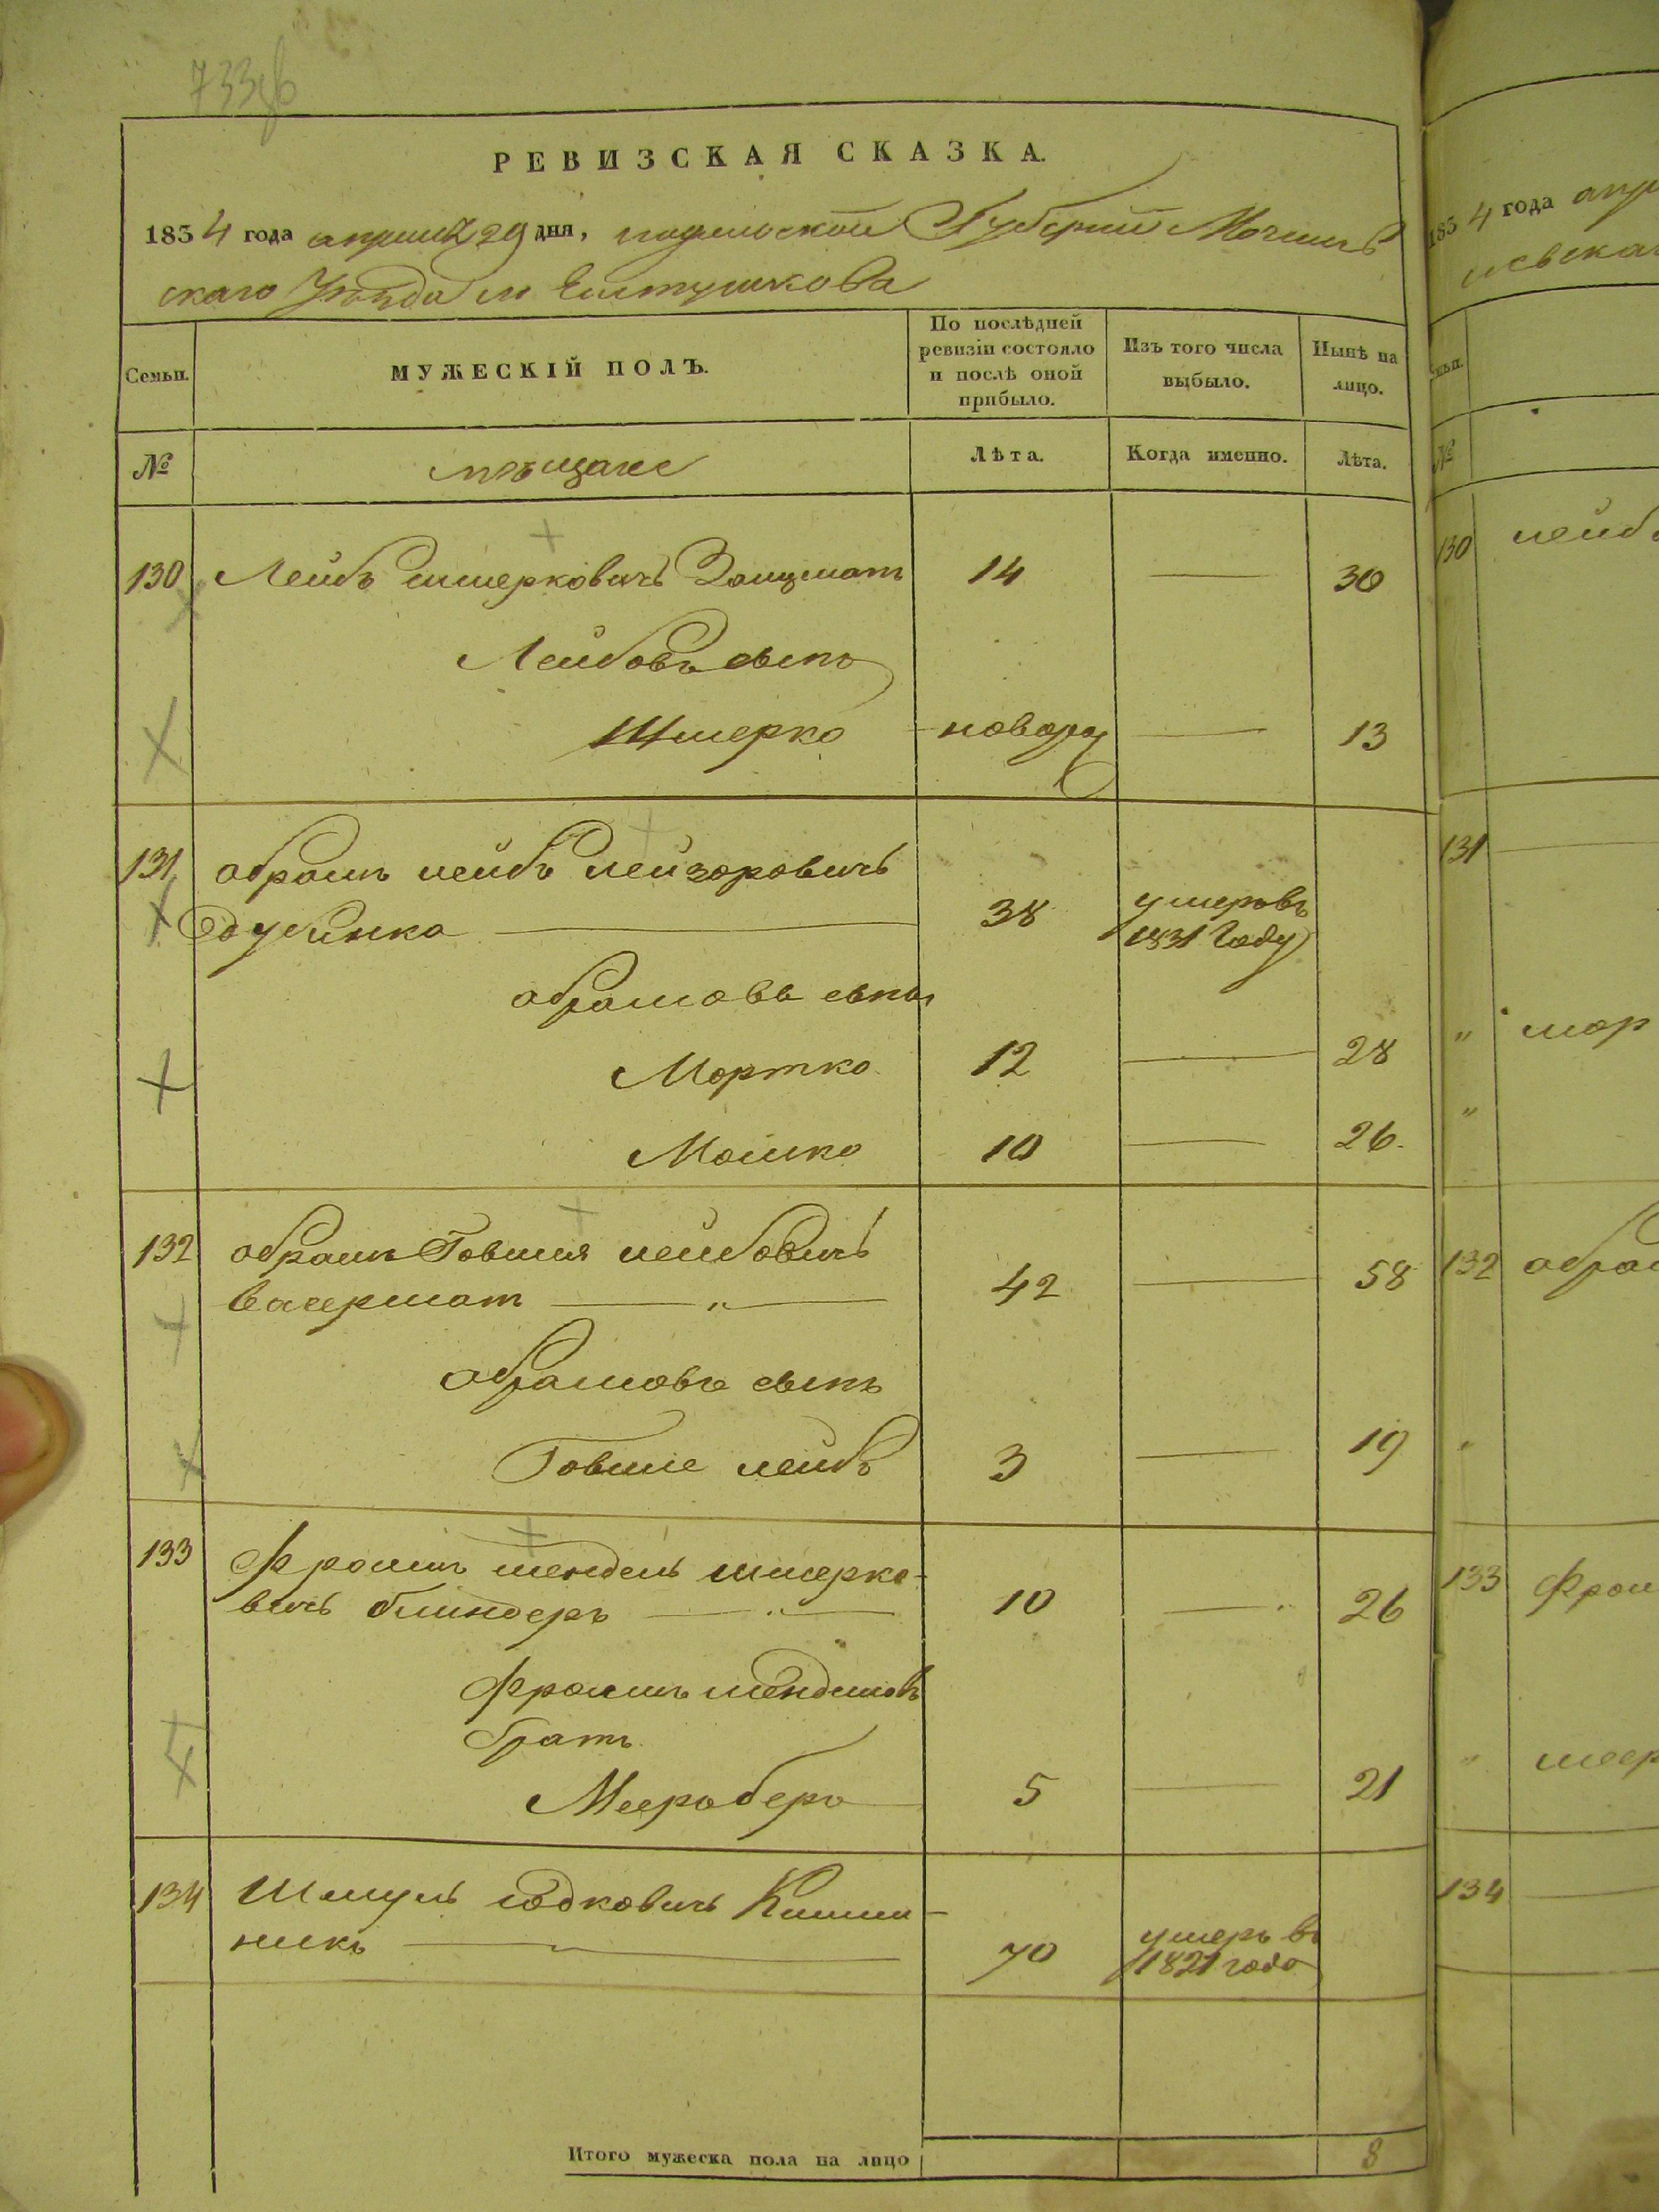 733
РЕВИЗСКАЯ СКАЗКА.
1834 года апреля 29 дня, подольской Губернии Могилев
скаго Уезда м Елтушкова
Семьи.
МУЖЕСКІЙ ПОЛЪ.
По послѣдней ревизіи состояло и послѣ оной прибыло.
Изъ того числа выбыло.
Нынѣ на лицо.
№
мѣщане
Лѣта.
Когда именно.
Лѣта.
130 Лейбъ шмерковичъ Зальцман 14 — 30
Лейбовъ сынъ
Шмерко новорож — 13
131 абрамъ лейбъ лейзоровичъ
Дубинка — 38 умеръ въ 1831 Году
абрамовы сыны
Мортко 12 — 28
Мошко 10 — 26.
132 абрамъ Говшия лейбовичъ
васерман — „ — 42 — 58
абрамовъ сынъ
Говшие лейбъ 3 — 19
133 Фроимъ мендель шмерко-
вичъ блиндеръ — 10 — 26
Фроимъ менделювъ
братъ
Мееръ беръ 5 — 21
134 Шмуль іодковичъ Кишин-
никъ — 70 умеръ въ 1821 года
Итого мужеска пола на лицо 8
1834 года апр
левска
№
130 лейб
131
" мор
"
132 абра
133 Фрои
" меер
134